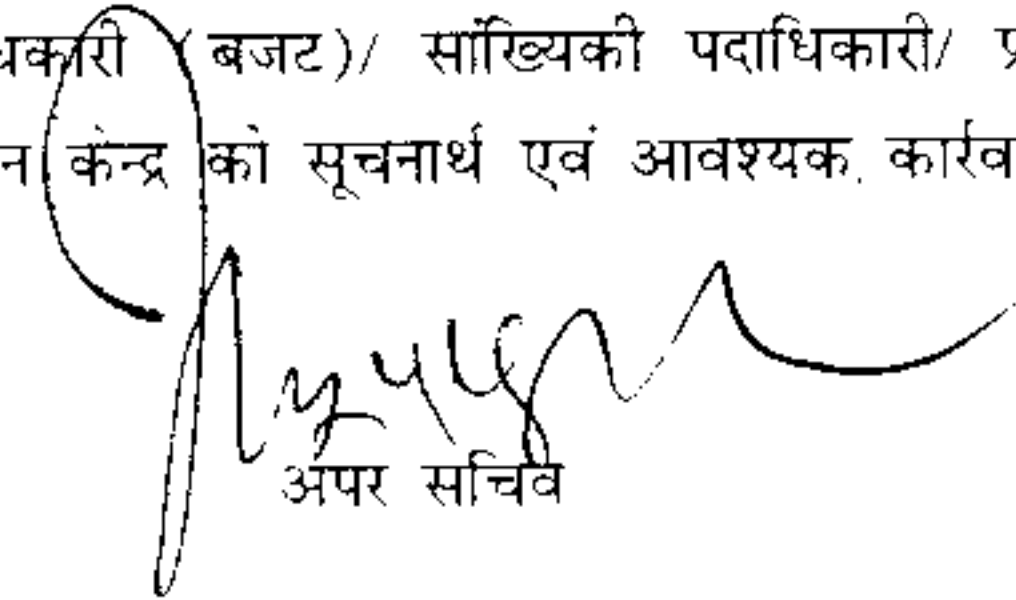 धिकारी (बजट)/ सांख्यिकी पदाधिकारी/ प्र
न केन्द्र को सूचनार्थ एवं आवश्यक कार्रव
अपर सचिव